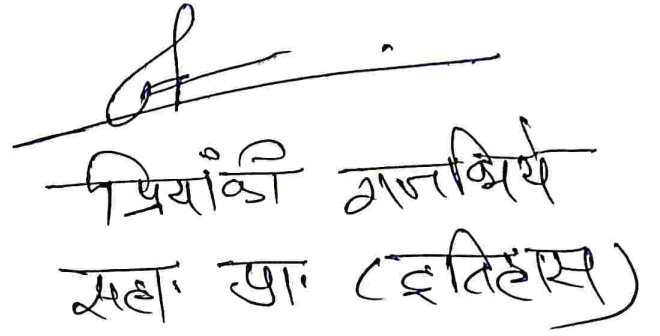 प्रियांकी गजभिये
सहा. प्रा. (इतिहास)